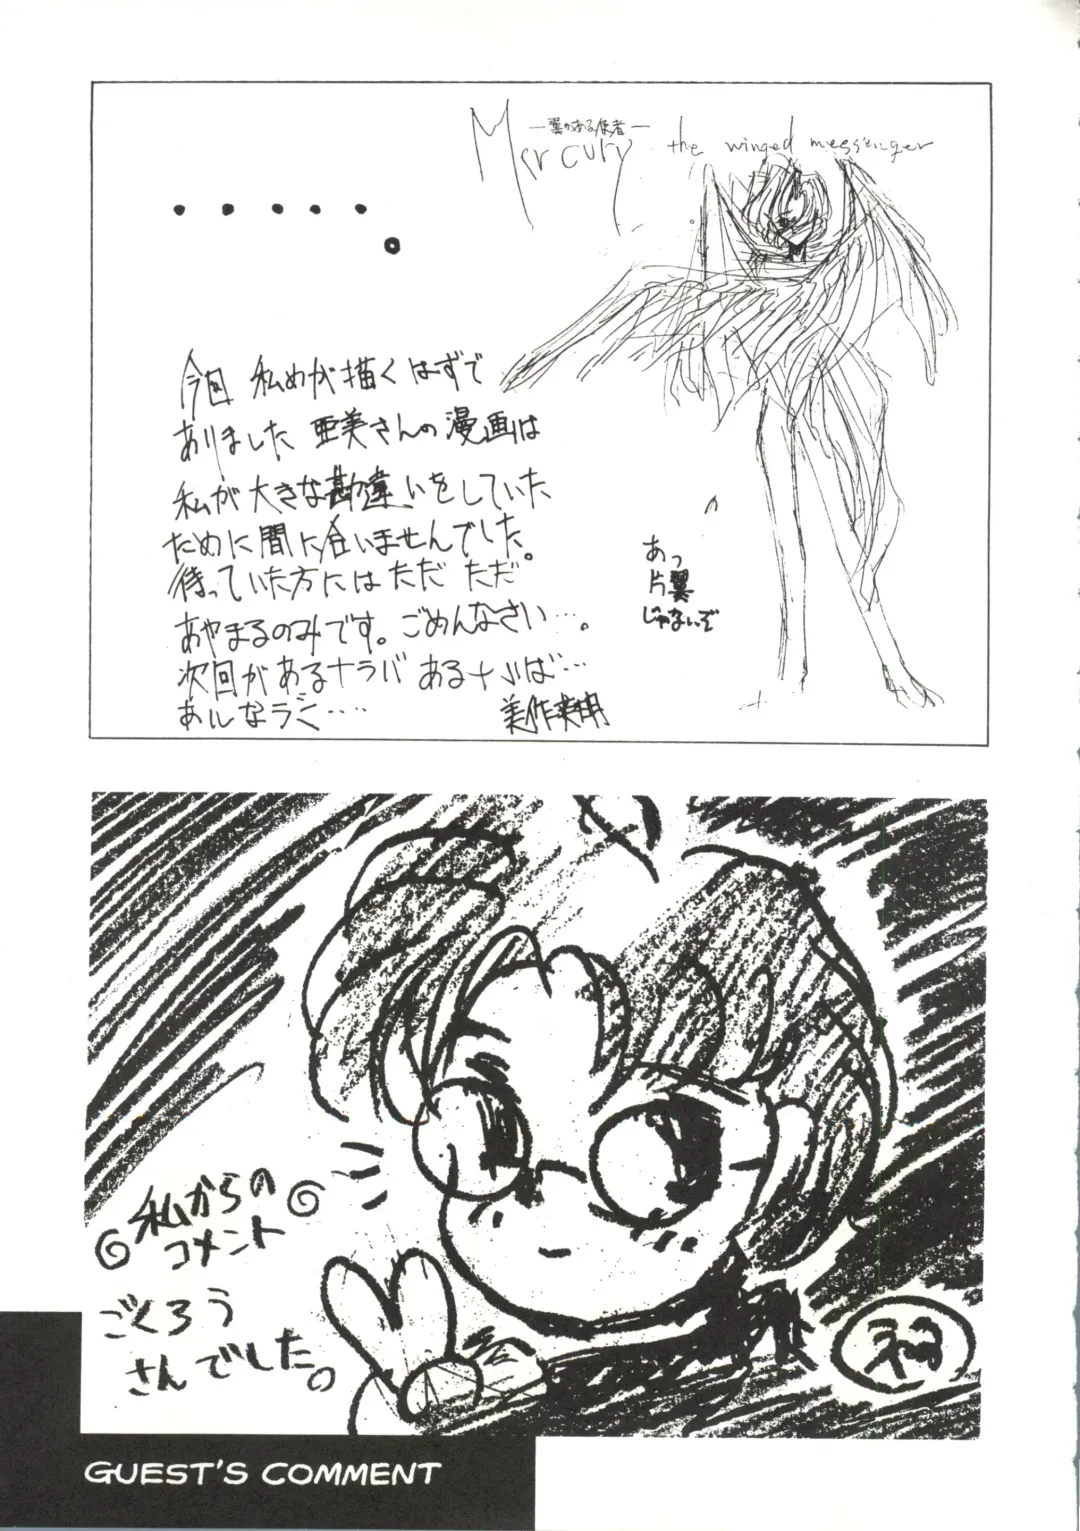 Mercury
―翼のある使者―
the winged messenger
・・・・・。
今回 私めが描くはずで
ありました 亜美さんの漫画は
私が大きな勘違いをしていた
ために間に合いませんでした。
待っていた方にはただ ただ
あやまるのみです。ごめんなさい…。
次回があるナラバ あるナらば…
美作
あっ
片翼
じゃないぞ
私からの
コメント
ごくろう
さんでした。
GUEST'S COMMENT